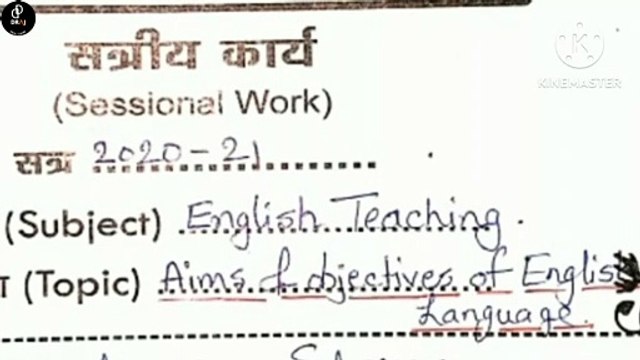 DRAJ
KINEMASTER
सत्रीय कार्य
(Sessional Work)
सत्र 2020-21
(Subject) English Teaching.
(Topic) Aims & objectives of English
Language.